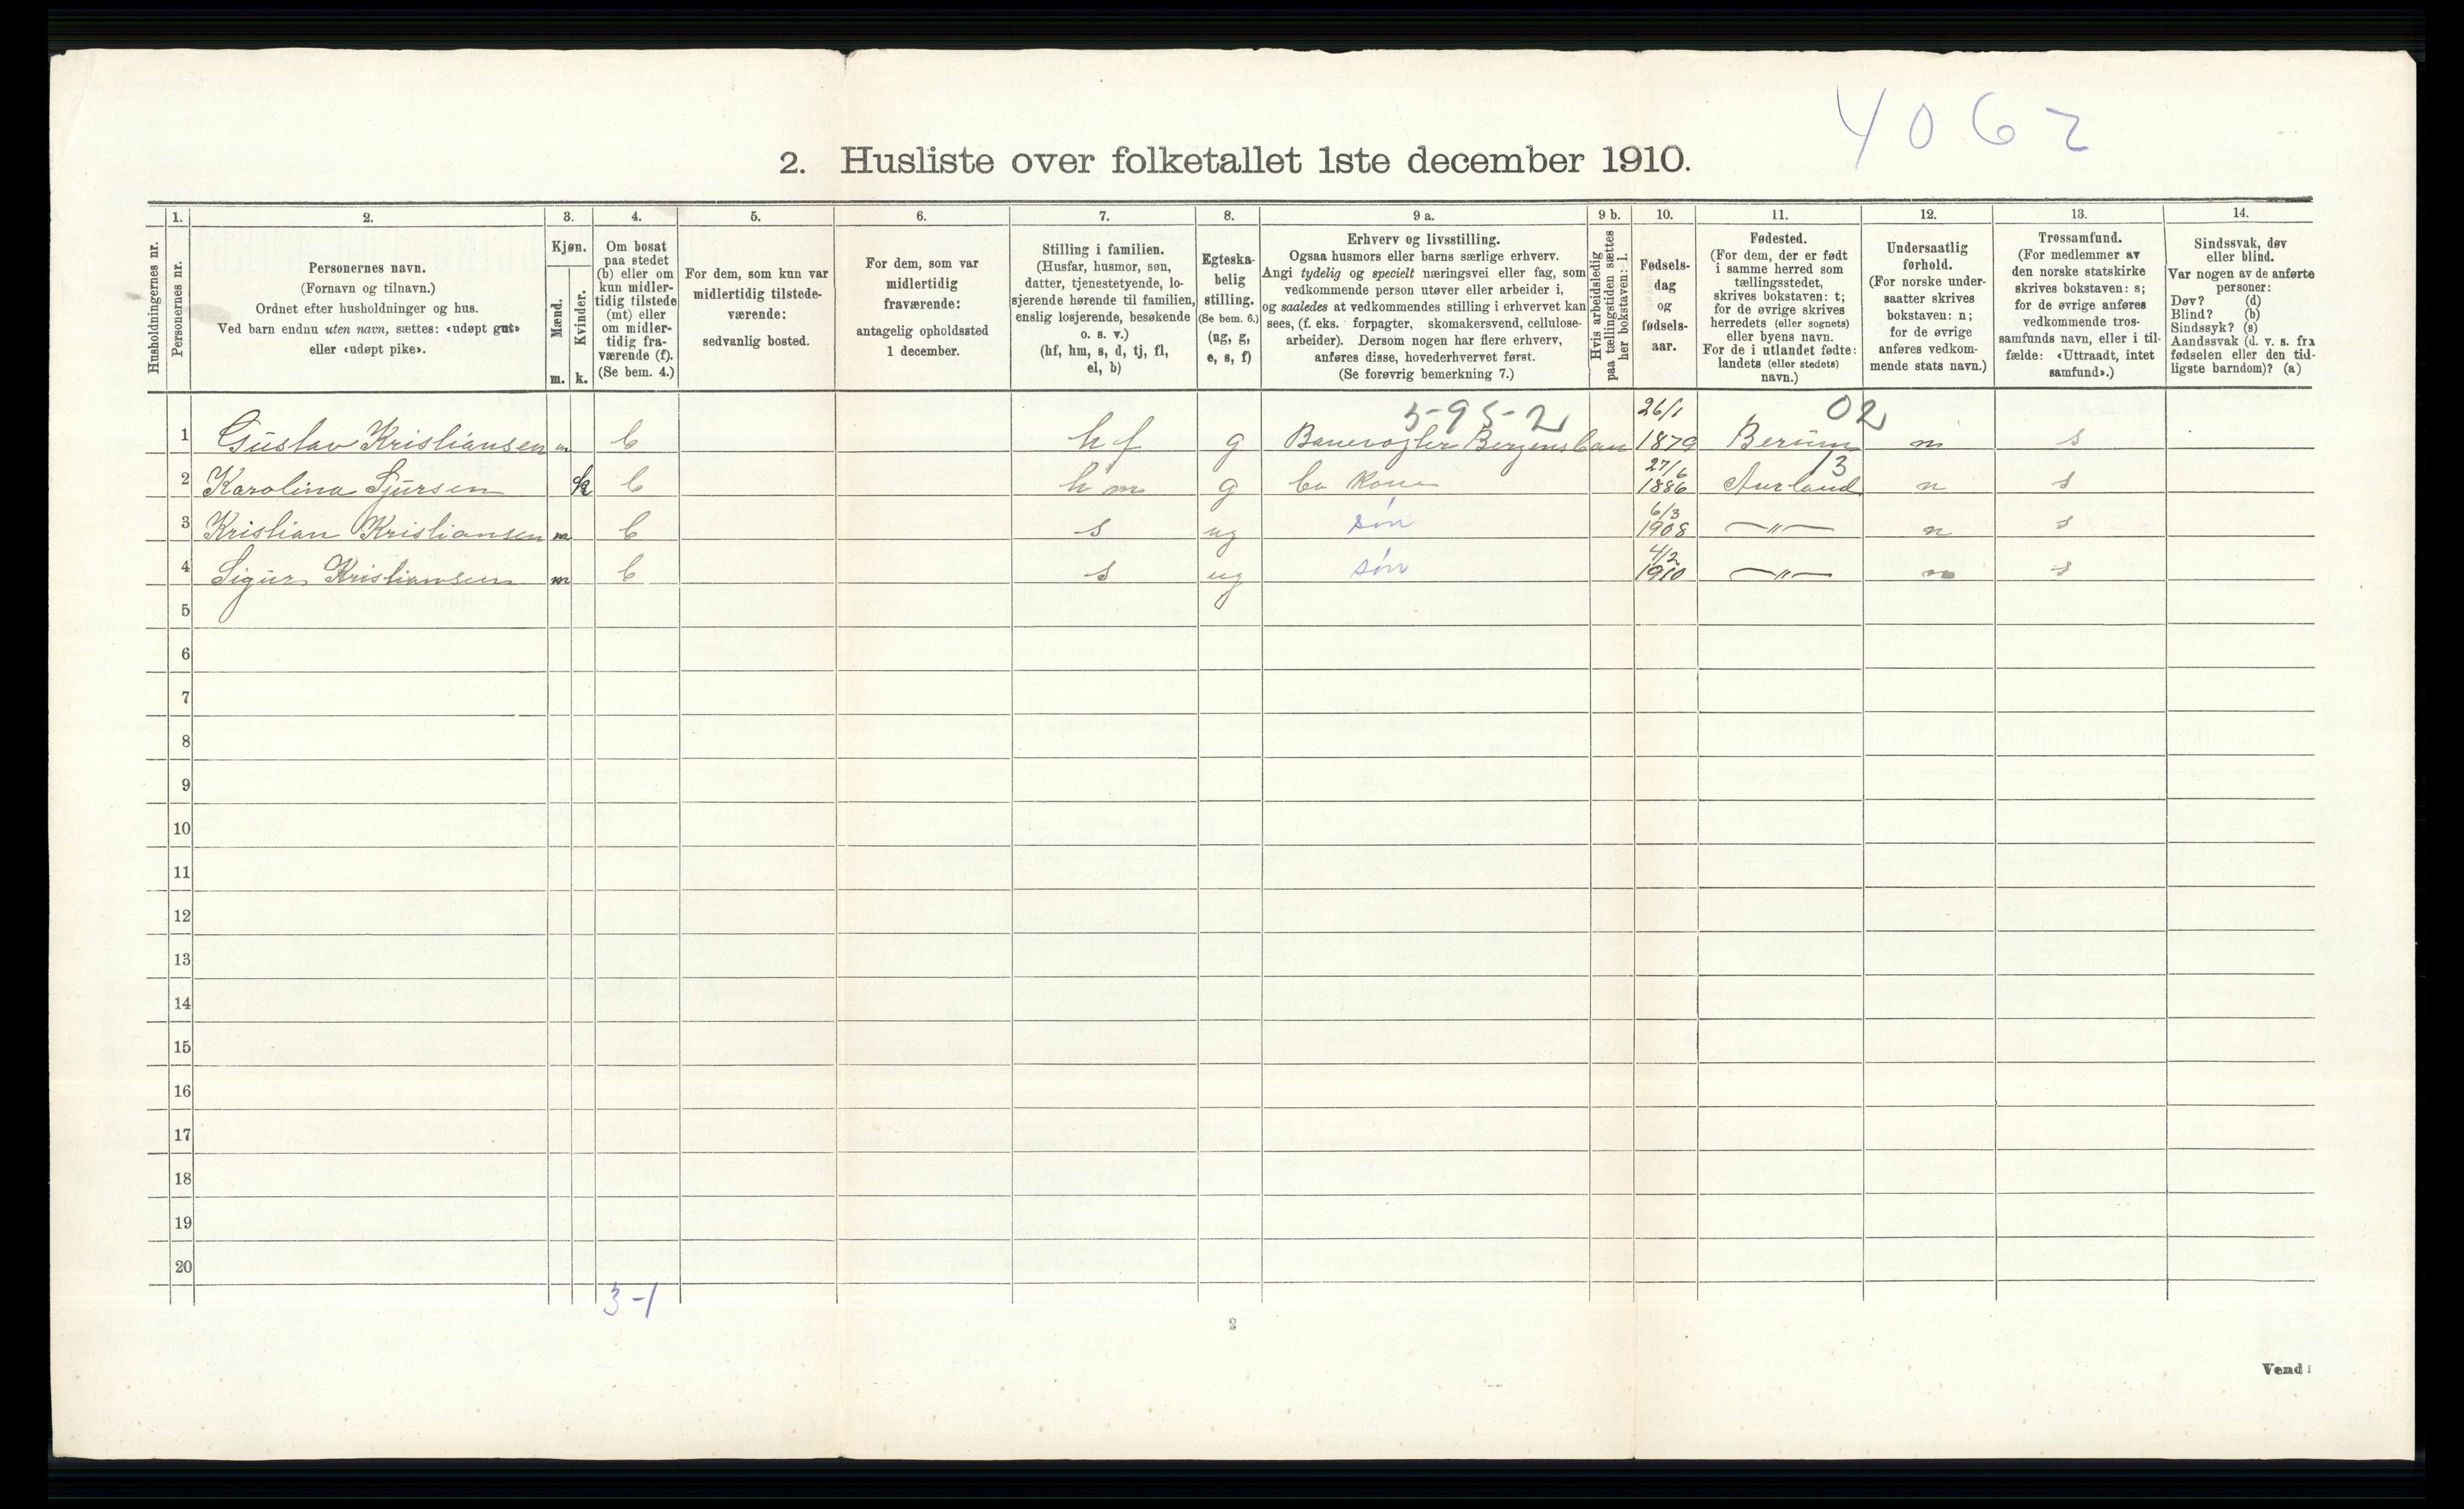 4062
2. Husliste over folketallet 1ste december 1910.
Husholdningernes nr.
1. Personernes nr.
2. Personernes navn. (Fornavn og tilnavn.) Ordnet efter husholdninger og hus. Ved barn endnu uten navn, sættes: «udøpt gut» eller «udøpt pike».
3. Kjøn. Mænd. m. Kvinder. k.
4. Om bosat paa stedet (b) eller om kun midler-tidig tilstede (mt) eller om midler-tidig fra-værende (f). (Se bem. 4.)
5. For dem, som kun var midlertidig tilstede-værende: sedvanlig bosted.
6. For dem, som var midlertidig fraværende: antagelig opholdssted 1 december.
7. Stilling i familien. (Husfar, husmor, søn, datter, tjenestetyende, lo-sjerende hørende til familien, enslig losjerende, besøkende o. s. v.) (hf, hm, s, d, tj, fl, el, b)
8. Egteska-belig stilling. (Se bem. 6.) (ug, g, e, s, f)
9 a. Erhverv og livsstilling. Ogsaa husmors eller barns særlige erhverv. Angi tydelig og specielt næringsvei eller fag, som vedkommende person utøver eller arbeider i, og saaledes at vedkommendes stilling i erhvervet kan sees, (f. eks. forpagter, skomakersvend, cellulose-arbeider). Dersom nogen har flere erhverv, anføres disse, hovederhvervet først. (Se forøvrig bemerkning 7.)
9 b. Hvis arbeidsledig paa tællingstiden sættes her bokstaven: l.
10. Fødsels-dag og fødsels-aar.
11. Fødested. (For dem, der er født i samme herred som tællingsstedet, skrives bokstaven: t; for de øvrige skrives herredets (eller sognets) eller byens navn. For de i utlandet fødte: landets (eller stedets) navn.)
12. Undersaatlig forhold. (For norske under-saatter skrives bokstaven: n; for de øvrige anføres vedkom-mende stats navn.)
13. Trossamfund. (For medlemmer av den norske statskirke skrives bokstaven: s; for de øvrige anføres vedkommende tros-samfunds navn, eller i til-fælde: «Uttraadt, intet samfund».)
14. Sindssvak, døv eller blind. Var nogen av de anførte personer: Døv? (d) Blind? (b) Sindssyk? (s) Aandssvak (d. v. s. fra fødselen eller den tid-ligste barndom)? (a)
5-95-2 26/1 02
1 Gustav Kristiansen m b hf g Banevogter Bergensban 1879 Berum n s
27/6 13
2 Karolina Sjursen k b hm g Kone 1886 Aurland n s
6/3
3 Kristian Kristiansen m b s ug søn 1908 —"— n s
4/2
4 Sigur Kristiansen m b s ug søn 1910 —"— n s
5
6
7
8
9
10
11
12
13
14
15
16
17
18
19
20
3-1
2
Vend